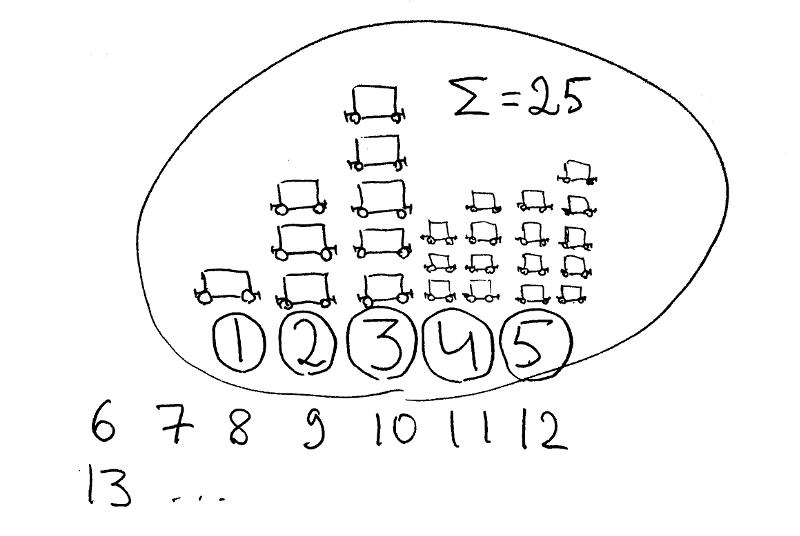 Σ = 25
1 2 3 4 5
6 7 8 9 10 11 12
13 ...